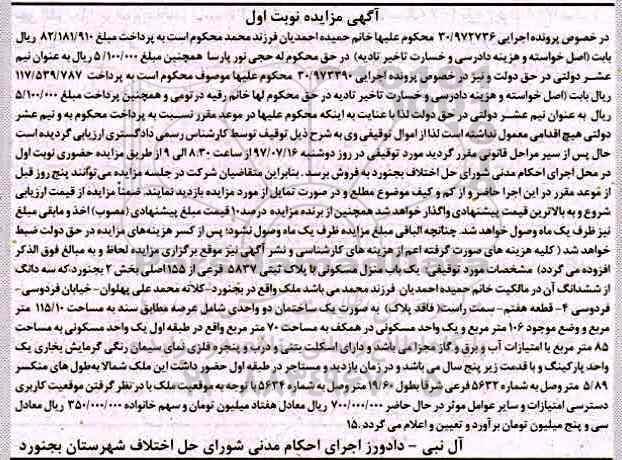 آگهی مزایده نوبت اول
در خصوص پرونده اجرایی ۳۰/۹۷۲۷۳۶ محکوم علیها خانم حمیده احمدیان فرزند محمد محکوم است به پرداخت مبلغ ۸۲/۱۸۱/۹۱۰ ریال
بابت (اصل خواسته و هزینه دادرسی و خسارت تاخیر تادیه) در حق محکوم له حجی نور پارسا همچنین مبلغ ۵/۱۰۰/۰۰۰ ریال به عنوان نیم
عشر دولتی در حق دولت و نیز در خصوص پرونده اجرایی ۳۰/۹۷۳۳۹۰ محکوم علیها موصوف محکوم است به پرداخت ۱۱۷/۵۳۹/۷۸۷
ریال بابت (اصل خواسته و هزینه دادرسی و خسارت تاخیر تادیه در حق محکوم لها خانم رقیه درتومی و همچنین پرداخت مبلغ ۵/۱۰۰/۰۰۰
ریال به عنوان نیم عشر دولتی در حق دولت لذا با عنایت به اینکه محکوم علیها در موعد مقرر نسبت به پرداخت محکوم به و نیم عشر
دولتی هیچ اقدامی معمول نداشته است لذا از اموال توقیفی وی به شرح ذیل توقیف توسط کارشناس رسمی دادگستری ارزیابی گردیده است
حال پس از سیر مراحل قانونی مقرر گردید مورد توقیفی در روز دوشنبه ۹۷/۰۷/۱۶ از ساعت ۸:۳۰ الی ۹ از طریق مزایده حضوری نوبت اول
در محل اجرای احکام مدنی شورای حل اختلاف بجنورد به فروش برسد. بنابراین متقاضیان شرکت در جلسه مزایده می توانند پنج روز قبل
از موعد مقرر در این اجرا حاضر و از کم و کیف موضوع مطلع و در صورت تمایل از مورد مزایده بازدید نمایند. ضمناً مزایده از قیمت ارزیابی
شروع و به بالاترین قیمت پیشنهادی واگذار خواهد شد همچنین از برنده مزایده درصد۱۰ قیمت مبلغ پیشنهادی (مصوب) اخذ و مابقی مبلغ
نیز ظرف یک ماه وصول خواهد شد. چنانچه الباقی مبلغ مزایده ظرف یک ماه وصول نشود؛ پس از کسر هزینه های مزایده در حق دولت ضبط
خواهد شد ( کلیه هزینه های صورت گرفته اعم از هزینه های کارشناسی و نشر آگهی نیز موقع برگزاری مزایده لحاظ و به مبالغ فوق الذکر
افزوده می گردد) مشخصات مورد توقیفی: یک باب منزل مسکونی با پلاک ثبتی ۵۸۳۷ فرعی از ۱۵۵اصلی بخش ۲ بجنورد،که سه دانگ
از ششدانگ آن در مالکیت خانم حمیده احمدیان فرزند محمد می باشد ملک واقع در بجنورد-کلاته محمد علی پهلوان- خیابان فردوسی-
فردوسی ۴- قطعه هفتم- سمت راست( فاقد پلاک) به صورت یک ساختمان دو واحدی شامل عرصه مطابق سند به مساحت ۱۱۵/۱۰ متر
مربع و وضع موجود ۱۰۶ متر مربع و یک واحد مسکونی در همکف به مساحت ۷۰ متر مربع واقع در طبقه اول یک واحد مسکونی به مساحت
۸۵ متر مربع با امتیازات آب و برق و گاز مجزا می باشد و دارای اسکلت بتنی و درب و پنجره فلزی نمای سیمان رنگی گرمایش بخاری یک
واحد پارکینگ و با قدمت زیر پنج سال می باشد و در زمان بازدید، مستاجر در طبقه اول حضور داشت این ملک شمالا به طول های منکسر
۵/۸۹ متر وصل به شماره ۵۶۳۲ فرعی شرقا بطول ۱۹/۶۰ متر وصل به شماره ۵۶۳۴ با توجه به موقعیت ملک با در نظر گرفتن موقعیت کاربری
دسترسی امتیازات و سایر عوامل موثر در حال حاضر ۷۰۰/۰۰۰/۰۰۰ ریال معادل هفتاد میلیون تومان و سهم خانواده ۳۵۰/۰۰۰/۰۰۰ ریال معادل
سی و پنج میلیون تومان برآورد و تعیین و اعلام می گردد .۱۵
آل نبی – دادورز اجرای احکام مدنی شورای حل اختلاف شهرستان بجنورد